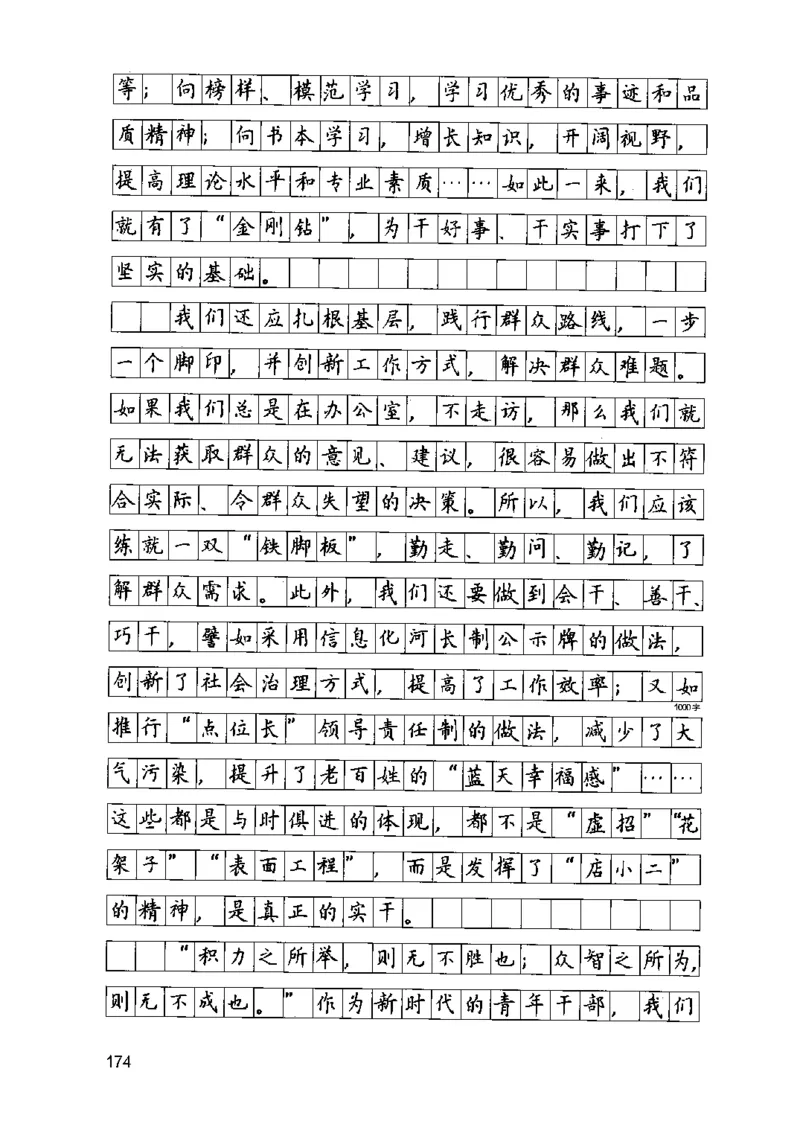 等；向榜样、模范学习，学习优秀的事迹和品
质精神；向书本学习，增长知识，开阔视野，
提高理论水平和专业素质……如此一来，我们
就有了“金刚钻”，为干好事、干实事打下了
坚实的基础。
我们还应扎根基层，践行群众路线，一步
一个脚印，并创新工作方式，解决群众难题。
如果我们总是在办公室，不走访，那么我们就
无法获取群众的意见、建议，很容易做出不符
合实际、令群众失望的决策。所以，我们应该
练就一双“铁脚板”，勤走、勤问、勤记，了
解群众需求。此外，我们还要做到会干、善干、
巧干，譬如采用信息化河长制公示牌的做法，
创新了社会治理方式，提高了工作效率；又如
1000字
推行“点位长”领导责任制的做法，减少了大
气污染，提升了老百姓的“蓝天幸福感”……
这些都是与时俱进的体现，都不是“虚招”“花
架子”“表面工程”，而是发挥了“店小二”
的精神，是真正的实干。
“积力之所举，则无不胜也；众智之所为，
则无不成也。”作为新时代的青年干部，我们
174